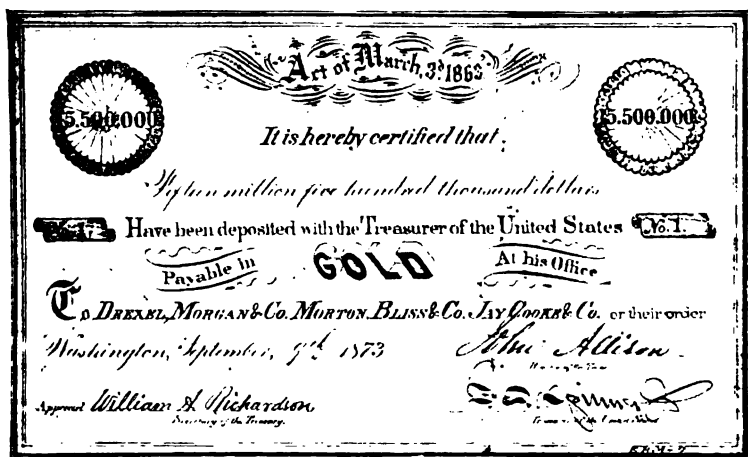 Act of March, 3d 1863
15.500.000 15.500.000
It is hereby certified that
Fifteen million five hundred thousand dollars
No. 1. Have been deposited with the Treasurer of the United States No. 1.
Payable in GOLD At his Office
To DREXEL, MORGAN & CO. MORTON, BLISS & CO. JAY COOKE & CO. or their order
Washington, September, 9th 1873 John Allison
Register of the Treasury
Approved William A Richardson F. E. Spinner
Secretary of the Treasury. Treasurer of the United States